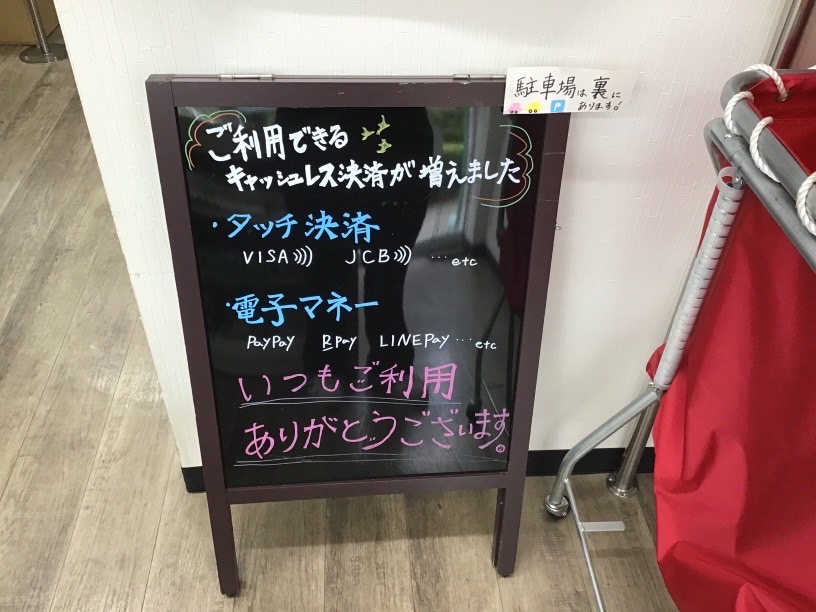 駐車場は裏に
あります!
ご利用できる
キャッシュレス決済が増えました
・タッチ決済
VISA JCB …etc
・電子マネー
PayPay RPay LINEPay…etc
いつもご利用
ありがとうございます。